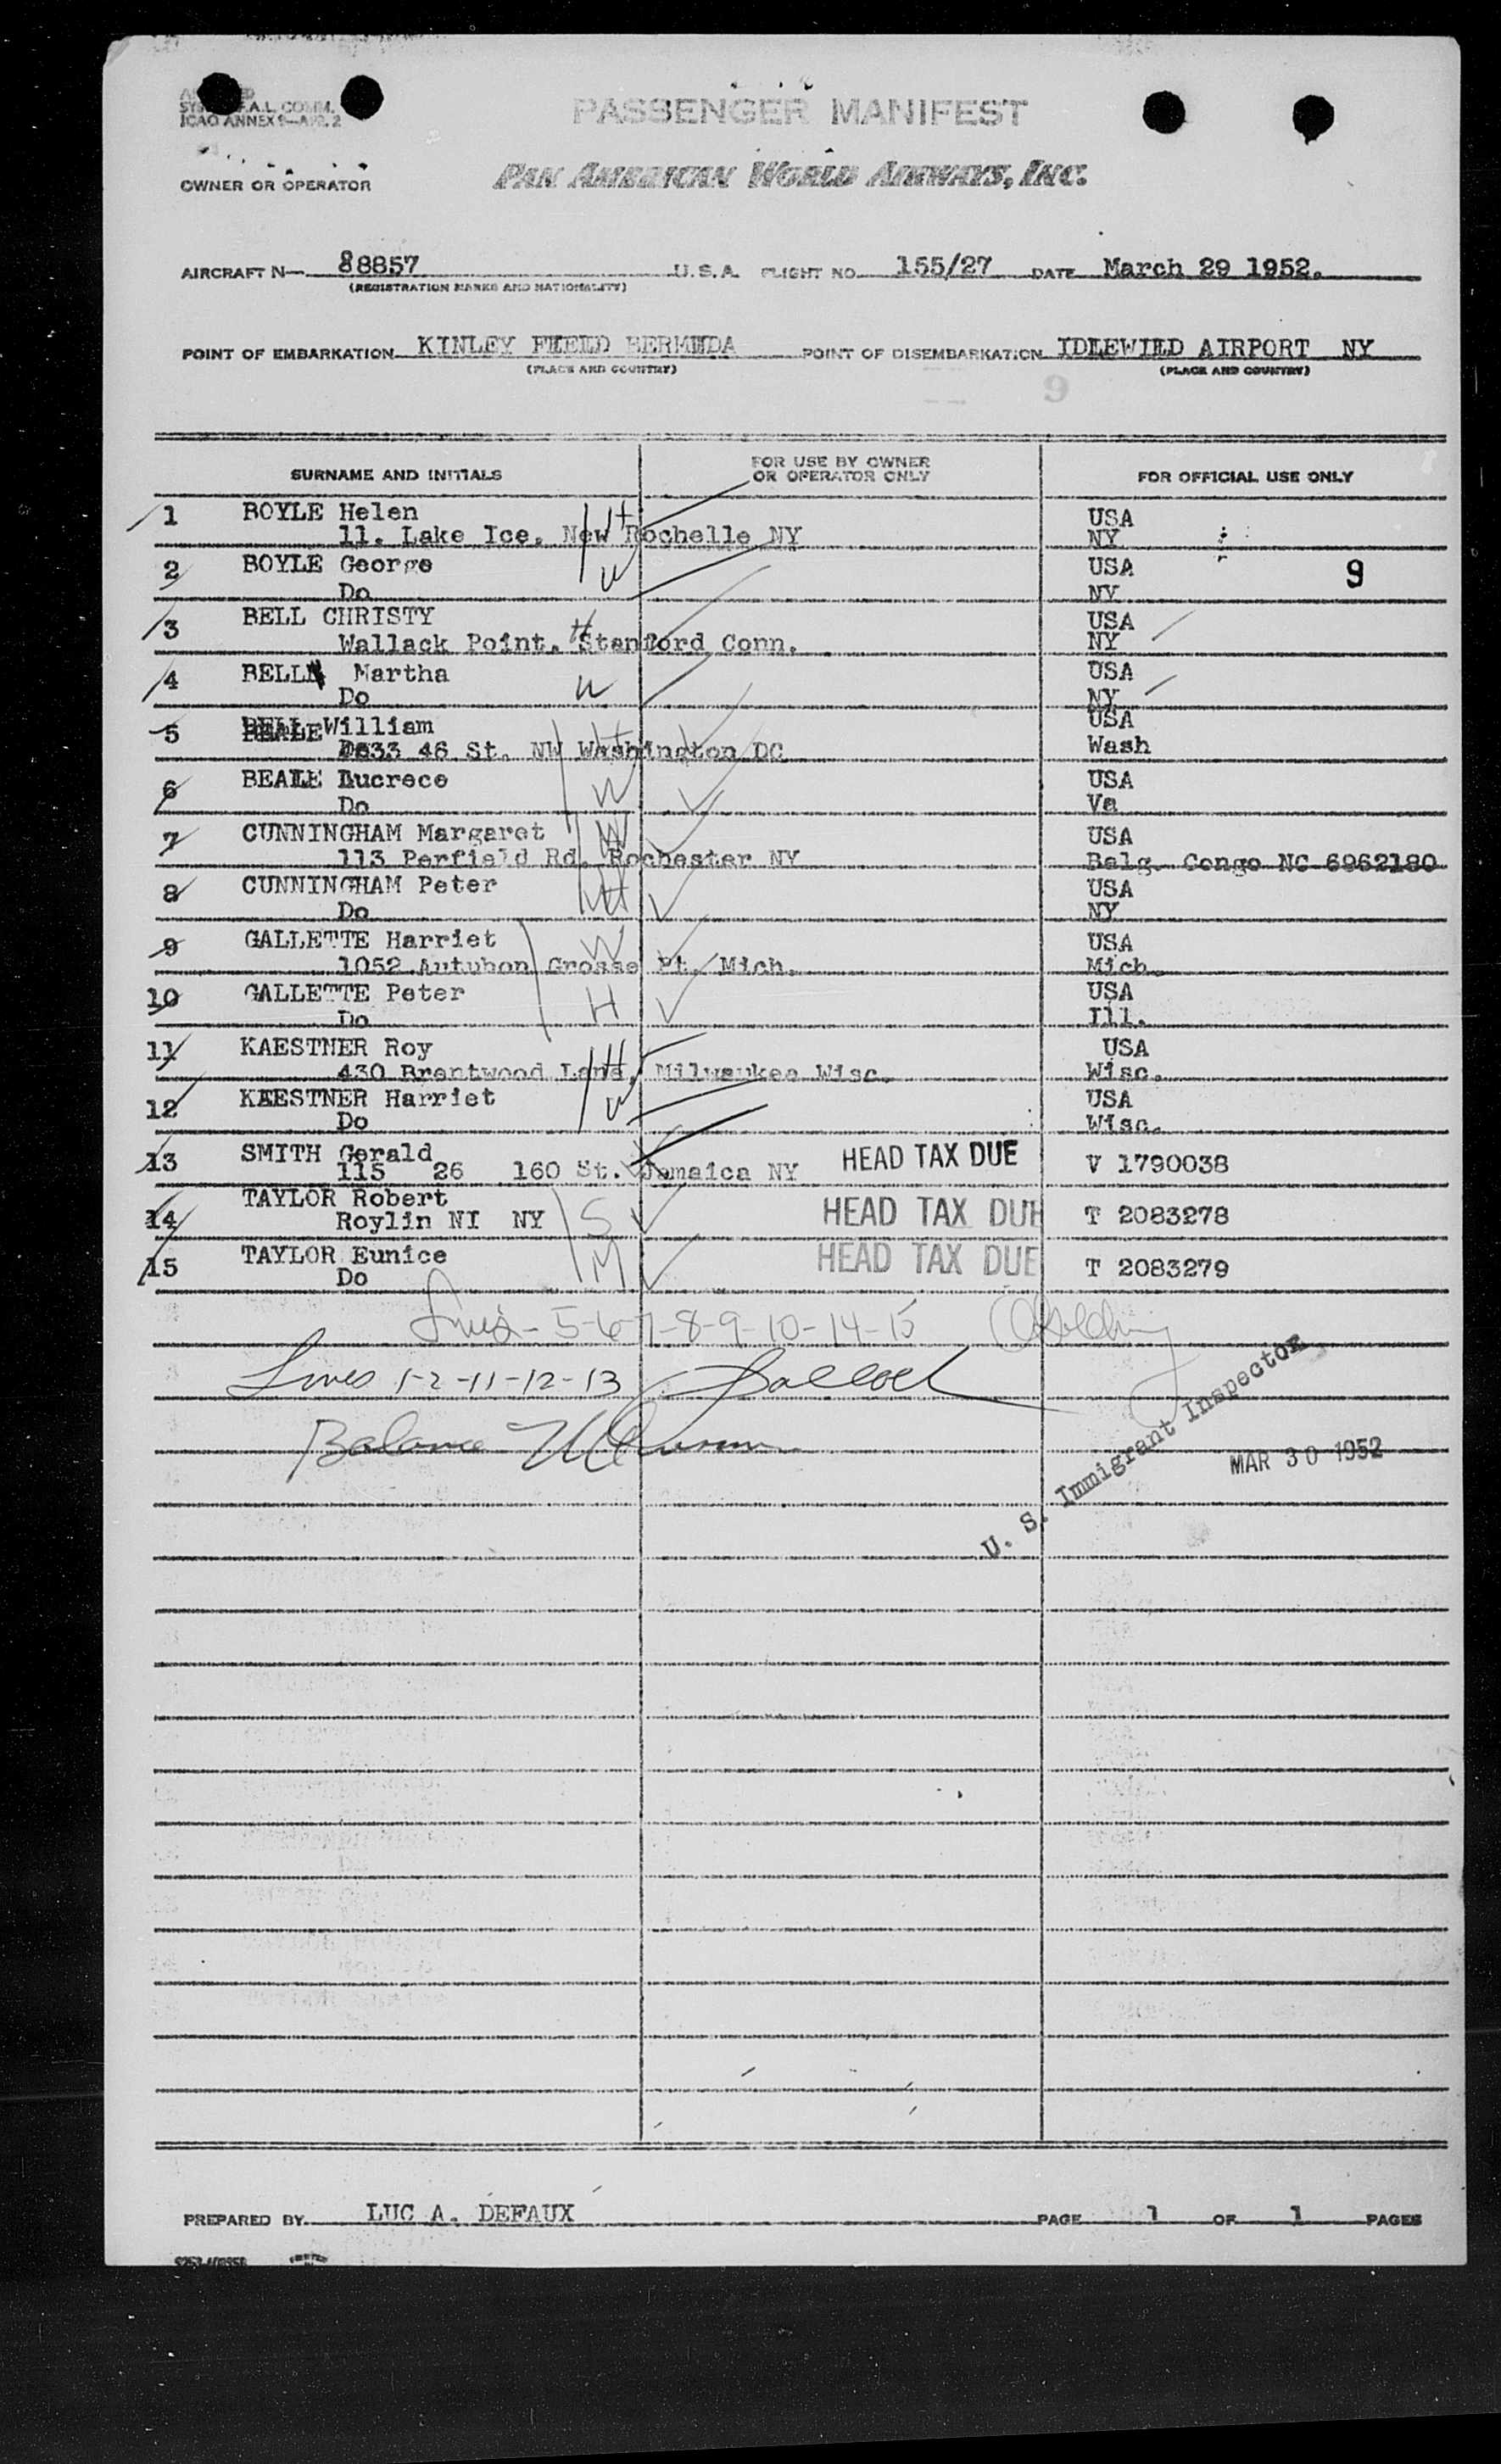 PASSENGER MANIFEST
F.A.L. COMM.
ICAO ANNEX 9—APP. 2
OWNER OR OPERATOR PAN AMERICAN WORLD AIRWAYS, INC.
AIRCRAFT N— 88857 U.S.A. FLIGHT NO. 155/27 DATE March 29 1952.
(REGISTRATION MARKS AND NATIONALITY)
POINT OF EMBARKATION KINLEY FIELD BERMUDA POINT OF DISEMBARKATION IDLEWILD AIRPORT NY
(PLACE AND COUNTRY) (PLACE AND COUNTRY)
9
SURNAME AND INITIALS FOR USE BY OWNER OR OPERATOR ONLY FOR OFFICIAL USE ONLY
1 BOYLE Helen H USA
11. Lake Ice. New Rochelle NY NY
2 BOYLE George W USA 9
Do NY
3 BELL CHRISTY H USA
Wallack Point. Stamford Conn. NY
4 BELL Martha W USA
Do NY
5 BEALE William H USA
4633 46 St. NW Washington DC Wash
6 BEALE Lucrece W USA
Do Va
7 CUNNINGHAM Margaret W USA
113 Perfield Rd. Rochester NY Belg. Congo NC 6962180
8 CUNNINGHAM Peter H USA
Do NY
9 GALLETTE Harriet W USA
1052 Autubon Grosse Pt. Mich. Mich.
10 GALLETTE Peter H USA
Do Ill.
11 KAESTNER Roy H USA
430 Brentwood Lane, Milwaukee Wisc. Wisc.
12 KAESTNER Harriet W USA
Do Wisc.
13 SMITH Gerald HEAD TAX DUE V 1790038
115 26 160 St. Jamaica NY
14 TAYLOR Robert S HEAD TAX DUE T 2083278
Roylin NI NY
15 TAYLOR Eunice M HEAD TAX DUE T 2083279
Do
Lines - 5-6-7-8-9-10-14-15
Lines 1-2-11-12-13
Balance
U. S. Immigrant Inspector
MAR 30 1952
PREPARED BY LUC A. DEFAUX PAGE 1 OF 1 PAGES